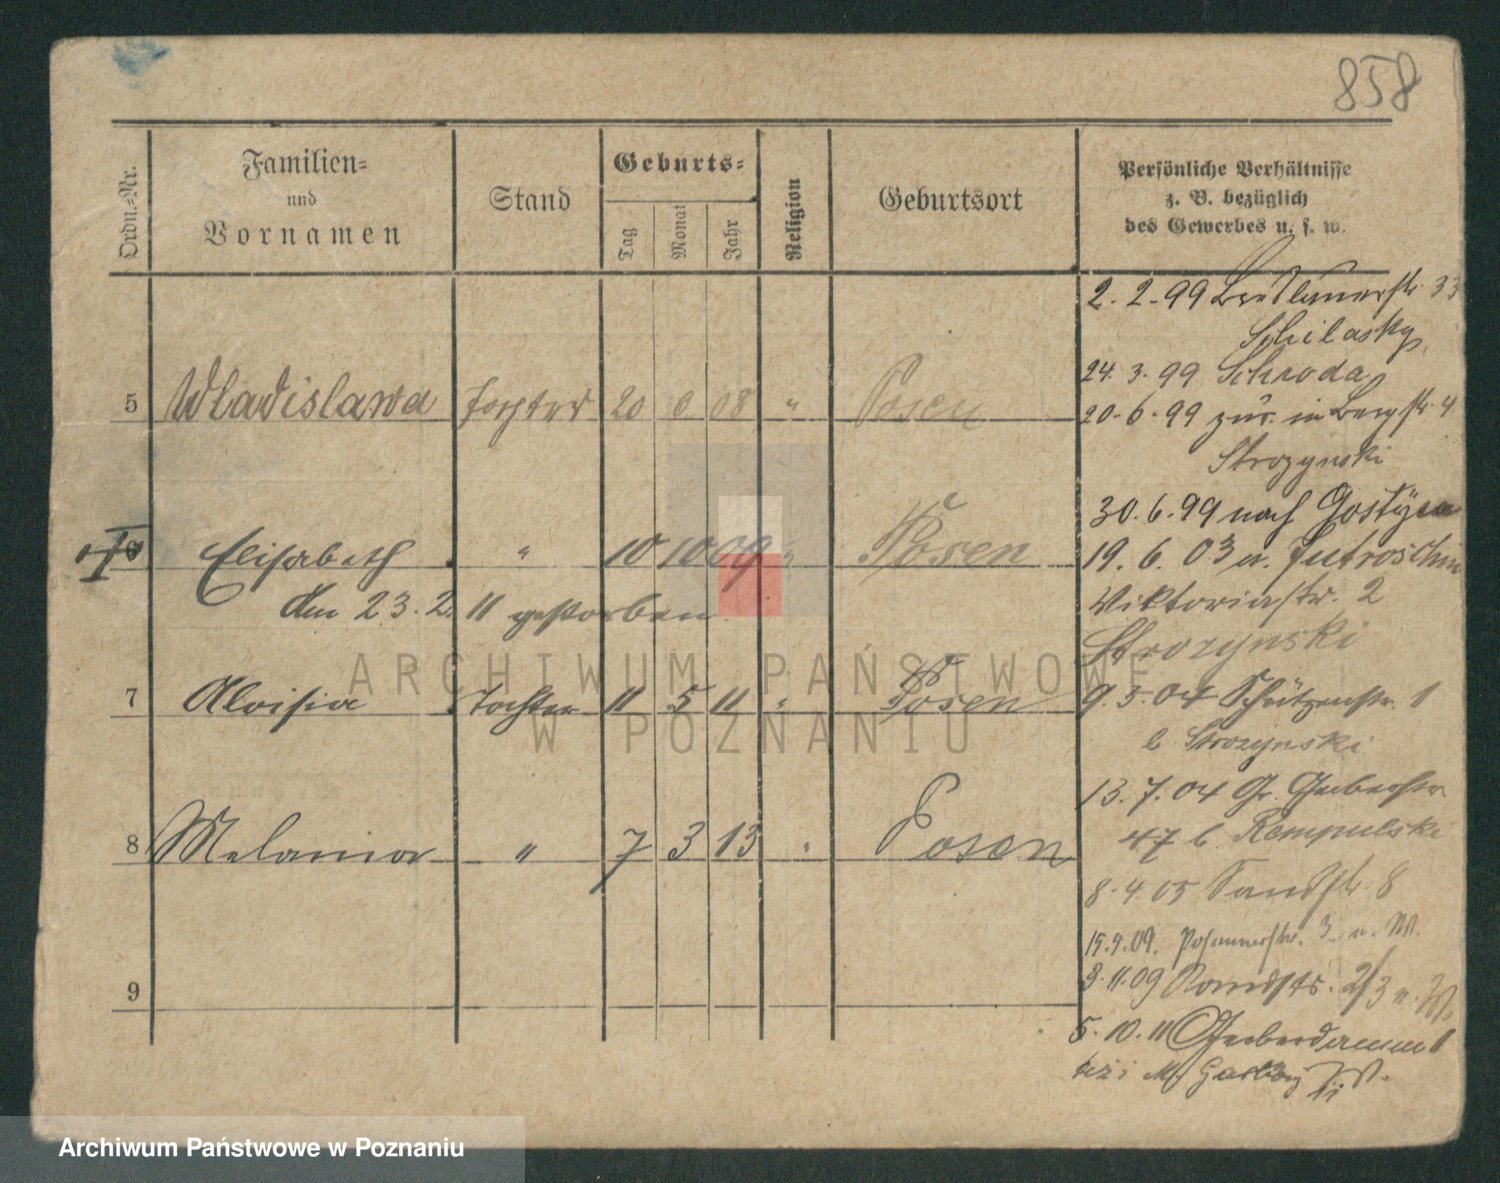 858
Ordn.-Nr.
Familien-
und
Vornamen
Stand
Geburts-
Tag
Monat
Jahr
Religion
Geburtsort
Persönliche Verhältnisse
z. B. bezüglich
des Gewerbes u. s. w.
5 Wladislawa Tochter 20 6 08 " Posen
6 Elisabeth " 10 10 09 " Posen
den 23.2. 11 gestorben
7 Aloisia Tochter 11 5 11 " Posen
8 Melania " 7 3 13 " Posen
9
2.2.99 Breslauerstr. 33
24.3.99 Schroda
20.6.99 zur. in Bergstr. 4
Strozynski
30.6.99 nach Gostyn
19.6.03 v. Jutroschin
Viktoriastr. 2
Strozynski
9.5.04 Schützenstr. 1
b. Strozynski
13.7.04 Gr. Gerberstr
47 b. Rempulski
8.4.05 Sandstr. 8
15.9.09. Posenerstr. 3 u. W.
3.11.09 2/3 u. W.
5.10.11 Gerberdamm 1
ARCHIWUM PAŃSTWOWE
W POZNANIU
Archiwum Państwowe w Poznaniu